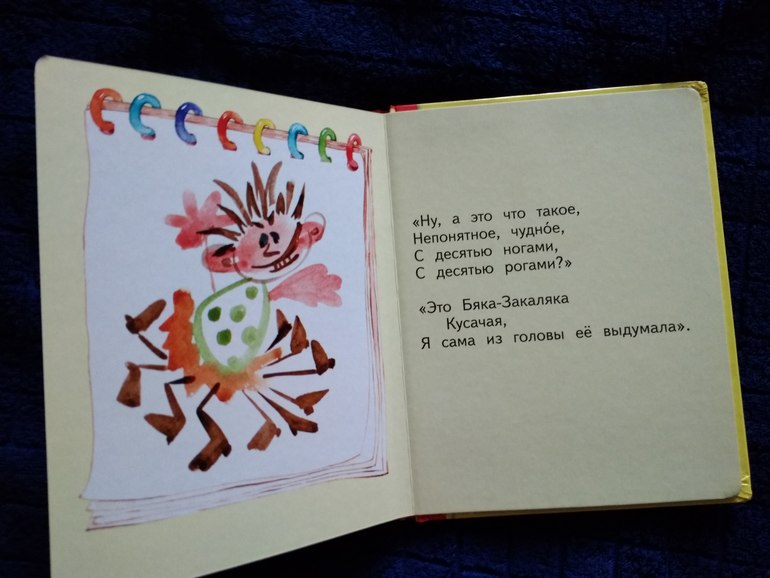 «Ну, а это что такое,
Непонятное, чудно́е,
С десятью ногами,
С десятью рогами?»
«Это Бяка-Закаляка
Кусачая,
Я сама из головы её выдумала».